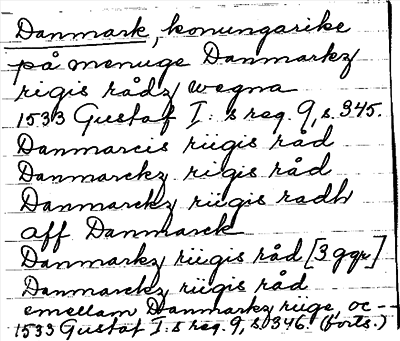 Danmark, konungarike
på menuge Danmarkz
rigis rådz wegna
1533 Gustaf I:s reg. 9, s. 345.
Danmarcis riigis råd
Danmarckz rigis råd
Danmarckz riigis radh
aff Danmarck
Danmarkz riigis råd [3 ggr]
Danmarckz riigis råd
emellam Danmarkz riige, oc --
1533 Gustaf I:s reg. 9, s. 346. (forts.)